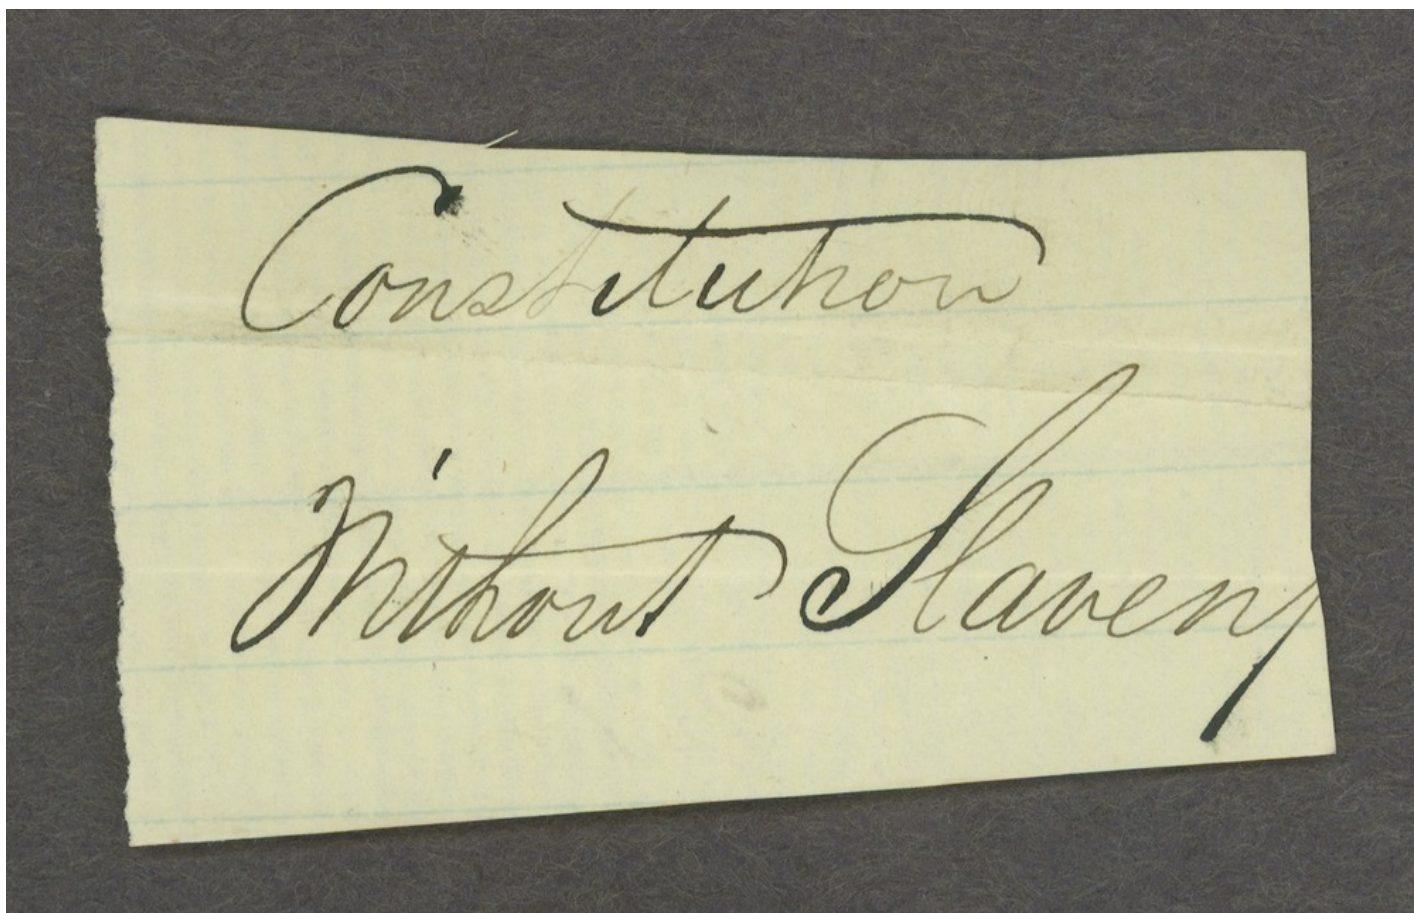 Constitution
Without Slavery